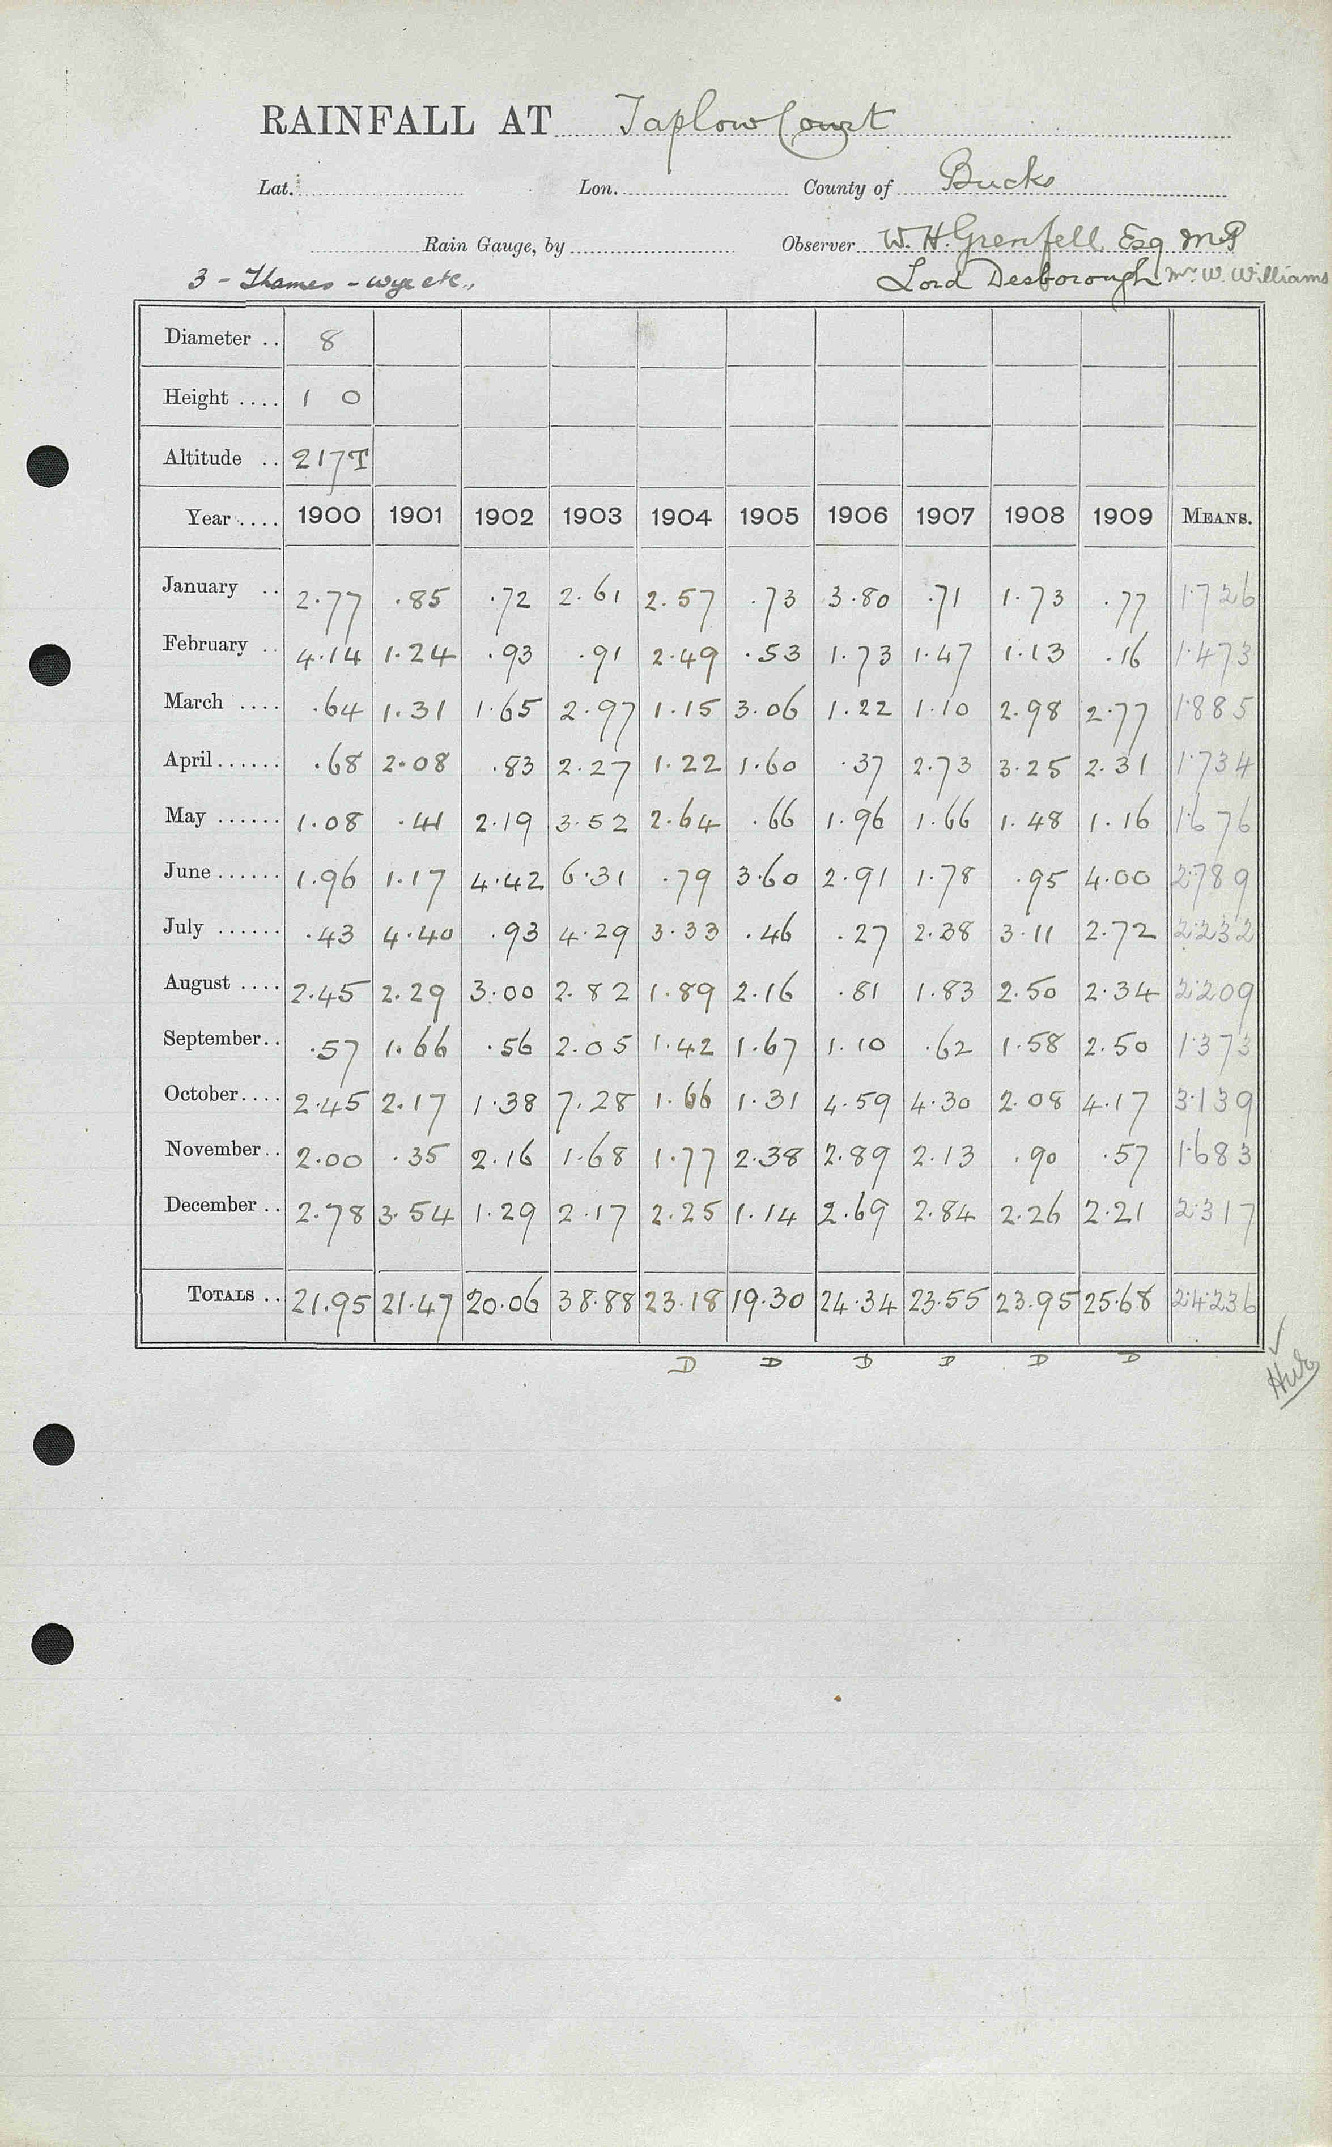 RAINFALL AT Taplow Court
Lat. Lon. County of Bucks
Rain Gauge, by Observer W. H. Grenfell Esq MP
3 - Thames - Wye etc., Lord Desborough Mr W. Williams
Diameter .. 8
Height .... 1 0
Altitude .. 217T
Year .... 1900 1901 1902 1903 1904 1905 1906 1907 1908 1909 MEANS.
January .. 2.77 .85 .72 2.61 2.57 .73 3.80 .71 1.73 .77 1.726
February .. 4.14 1.24 .93 .91 2.49 .53 1.73 1.47 1.13 .16 1.473
March .... .64 1.31 1.65 2.97 1.15 3.06 1.22 1.10 2.98 2.77 1.885
April ...... .68 2.08 .83 2.27 1.22 1.60 .37 2.73 3.25 2.31 1.734
May ...... 1.08 .41 2.19 3.52 2.64 .66 1.96 1.66 1.48 1.16 1.676
June ...... 1.96 1.17 4.42 6.31 .79 3.60 2.91 1.78 .95 4.00 2.789
July ...... .43 4.40 .93 4.29 3.33 .46 .27 2.38 3.11 2.72 2.232
August .... 2.45 2.29 3.00 2.82 1.89 2.16 .81 1.83 2.50 2.34 2.209
September .. .57 1.66 .56 2.05 1.42 1.67 1.10 .62 1.58 2.50 1.373
October .... 2.45 2.17 1.38 7.28 1.66 1.31 4.59 4.30 2.08 4.17 3.139
November .. 2.00 .35 2.16 1.68 1.77 2.38 2.89 2.13 .90 .57 1.683
December .. 2.78 3.54 1.29 2.17 2.25 1.14 2.69 2.84 2.26 2.21 2.317
TOTALS .. 21.95 21.47 20.06 38.88 23.18 19.30 24.34 23.55 23.95 25.68 24.236
D D D D D D